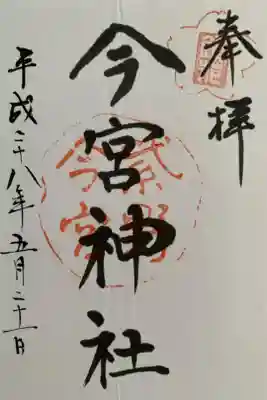 奉拝
今宮神社
平成二十八年五月二十一日
紫野
今宮